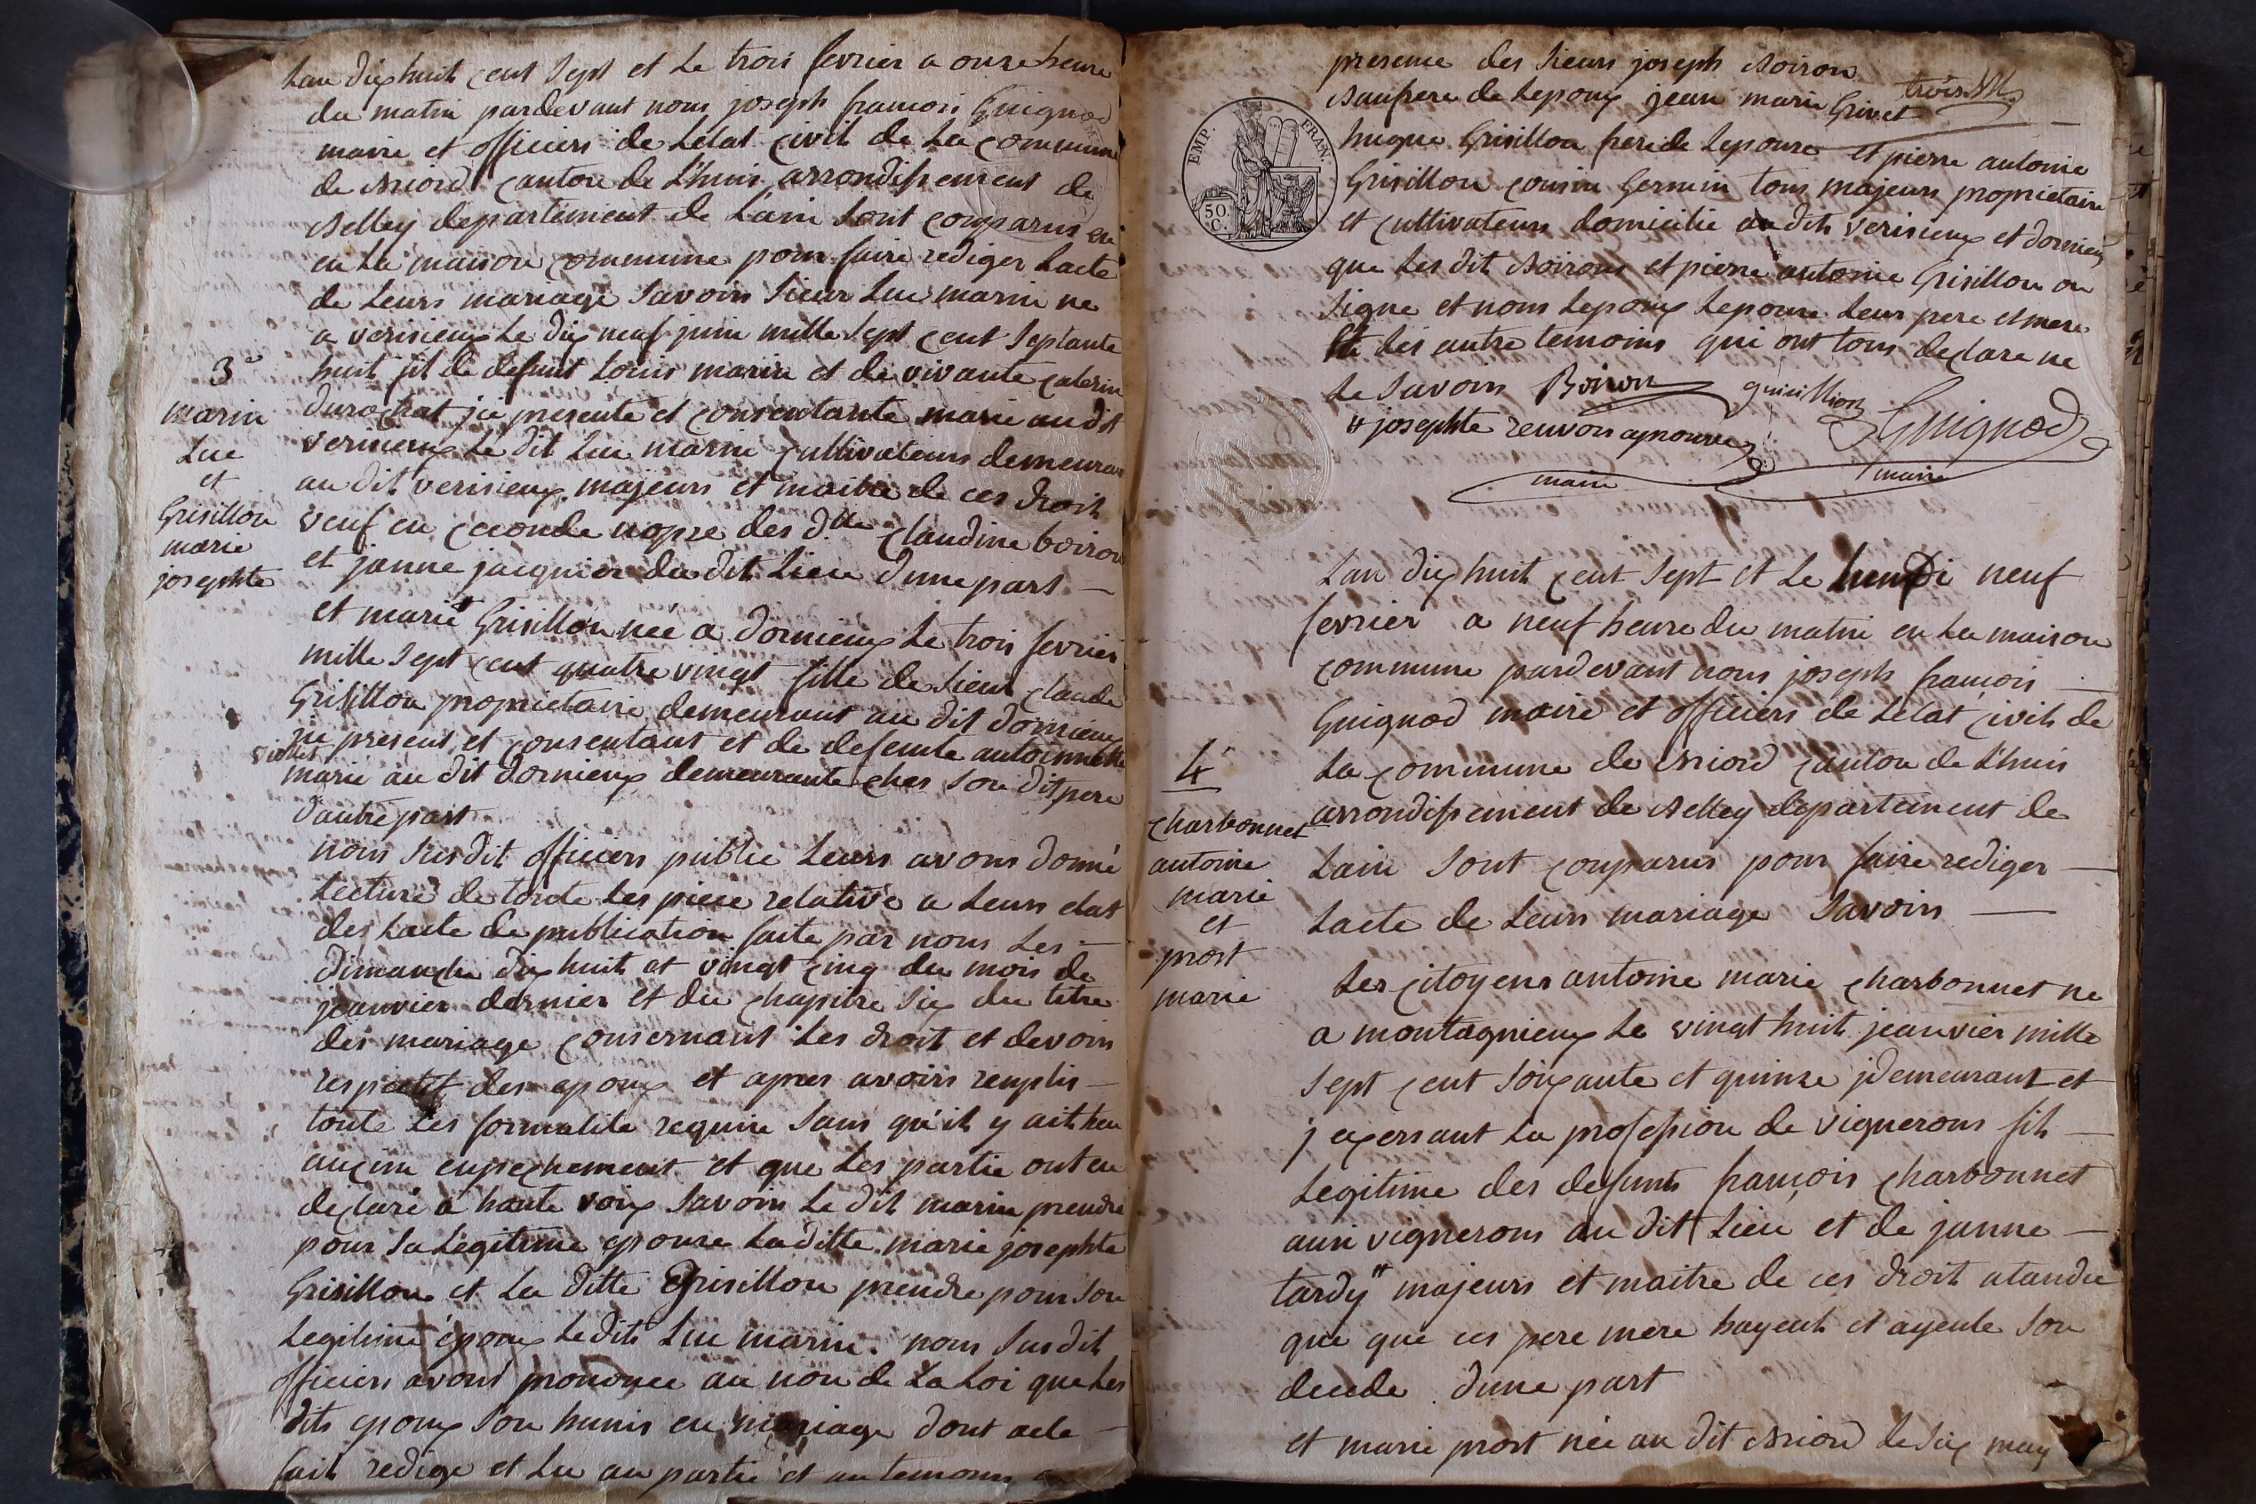 Lan dix huit cent sept et le trois fevrier a onze heure
du matin pardevant nous joseph francois Guignod
maire et officiers de Letat civil de La commune
de Briord canton de Lhuis arrondissement de
Belley departement de Lain sont comparus en
en La maison commune pour faire rediger Lacte
de Leurs mariage Savoirs Sieur Luc marin ne
a verisieux Le dix neuf juin mille sept cent septante
huit fil de defunt Louis marin et de vivante caterin
durochat jci presente et consentante marie au dit
verisieux Le dit Luc marin cultivateurs demeuran
au dit verisieux majeurs et maitre de ces droit
veuf en ceconde nopze des d.lle claudine boiron
et janne jacquier du dit Lieu dune part
3e
marin
Luc
et
Grisillon
marie
josephte
et marie Grisillon née a dornieux Le trois fevrier
mille sept cent quatre vingt fille de Sieur claude
Grisillon proprietaire demeurant au dit dornieux
jci present et consentant et de defeunte antoinnette
violet
marie au dit dornieux demeurante ches son dit pere
dautre part
nous susdit officiers public Leurs avons donné
Lecture de toute Les piece relative a Leurs etat
des Lacte de publication faite par nous Les
dimanche dix huit et vingt cinq du mois de
jeanvier dernier et du chapitre six du titre
des mariage consernant Les droit et devoirs
respectif des epoux et apres avoirs remplis
toute Les formalite requise sans qu'il y ait heu
aucun enpechement et que Les partie ont eu
declaré a haute voix Savoirs Le dit marin prendre
pour sa Legitime epouse Laditte marie josephte
Grisillon et La ditte Grisillon prendre pour son
Legitime époux Ledit Luc marin. nous susdit
officiers avons prononcee au non de La Loi que Les
dits epoux son hunis en mariage dont acte
fait redige et Lu au partie et au temoins
presence des Sieurs joseph Boiron
Baufrere de Lepoux jean marie Grivet
trois
hugue Grisillon frere de Lepouse et pierre antoine
Grisillon cousin Germin tous majeurs proprietaire
et cultivateurs domicilie au dit verisieux et dornieux
que Les dit Boirons et pierre antoine Grisillon on
signe et nons Lepoux Lepouse Leur pere et mere
et Les autre temoins qui ont tous declare ne
Le Savoirs Boiron Guisillion
josephte renvois aprouve Guignod
maire maire
EMP. FRAN.
50. C.
Lan dix huit cent sept et Le lundi neuf
fevrier a neuf heure du matin en La maison
commune pardevant nous joseph francois
Guignod maire et officiers de Letat civil de
La commune de Briord canton de Lhuis
arrondissement de Belley departement de
Lain sont comparus pour faire rediger
Lacte de Leurs mariage Savoirs
4e
charbonnet
antoine
marie
et
prost
marie
Les citoyens antoine marie charbonnet ne
a montagnieux Le vingt huit jeanvier mille
sept cent soixante et quinze jdemeurant et
j exersant La profession de vignerons fils
Legitime des defunts françois charbonnet
aussi vignerons au dit Lieu et de janne
tardy majeurs et maitre de ces droit atandu
que que ces pere mere hayeul et ayeule son
decede dune part
et marie prost née au dit Briord Le six may